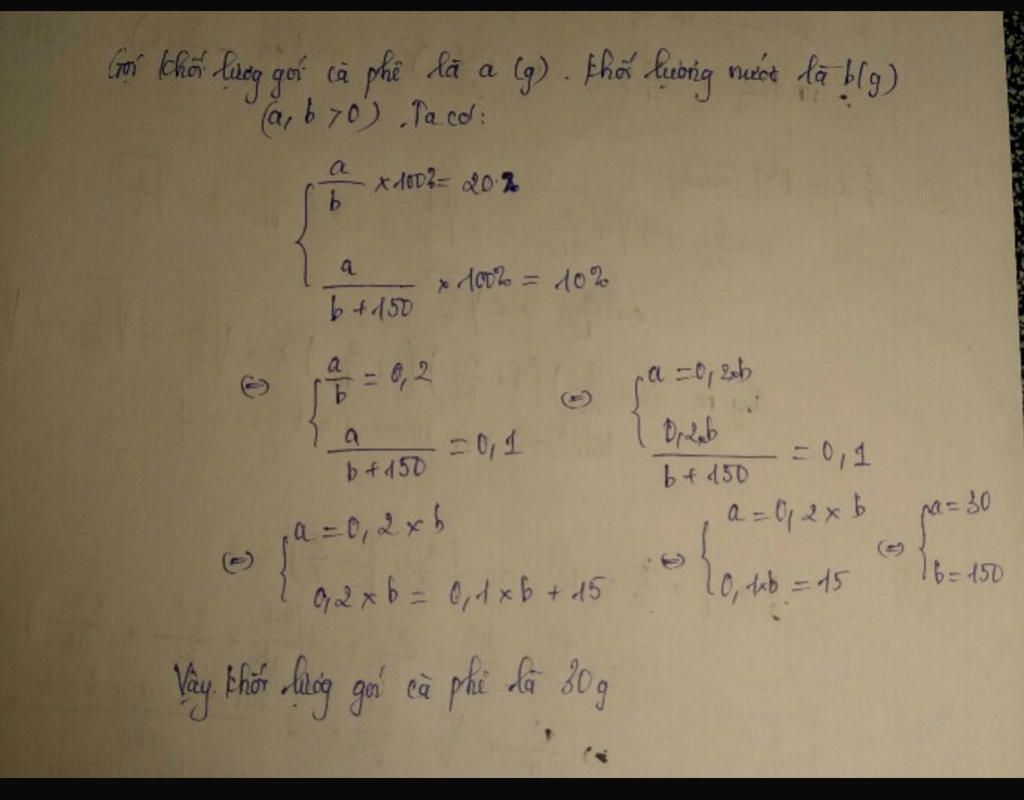 Gọi khối lượg gói cà phê là a (g). Khối lượng nước là b(g)
(a, b > 0). Ta có:
{ a/b × 100% = 20%
a/(b + 150) × 100% = 10%
⇔ { a/b = 0,2 ⇔ { a = 0,2×b
a/(b + 150) = 0,1 0,2×b/(b + 150) = 0,1
⇔ { a = 0,2 × b ⇔ { a = 0,2 × b ⇔ { a = 30
0,2 × b = 0,1 × b + 15 0,1×b = 15 b = 150
Vậy khối lượg gói cà phê là 30g